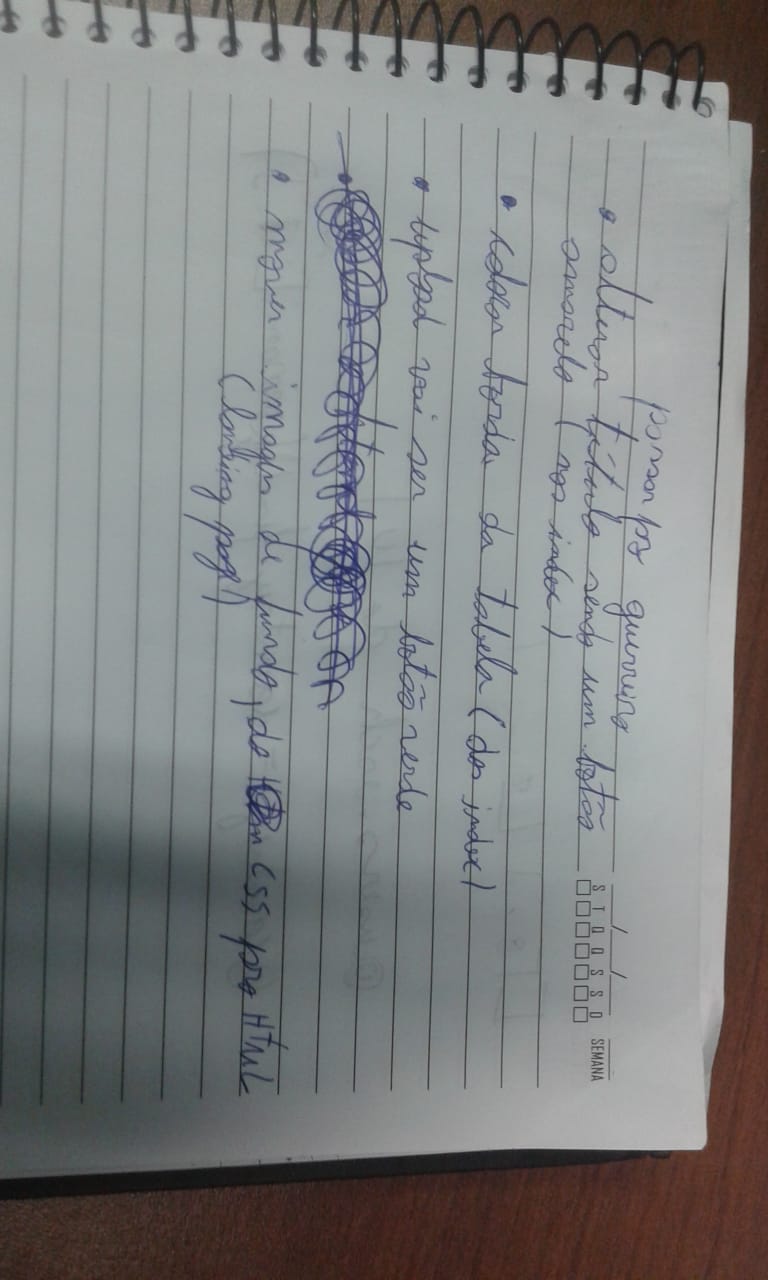 S T Q Q S S D SEMANA
passar pro
• alterar título sendo um botão
amarelo (no index)
• colocar borda da tabela (do index)
• upload vai ser um botão verde
• imagem de fundo, do CSS pro HTML
(landing page)